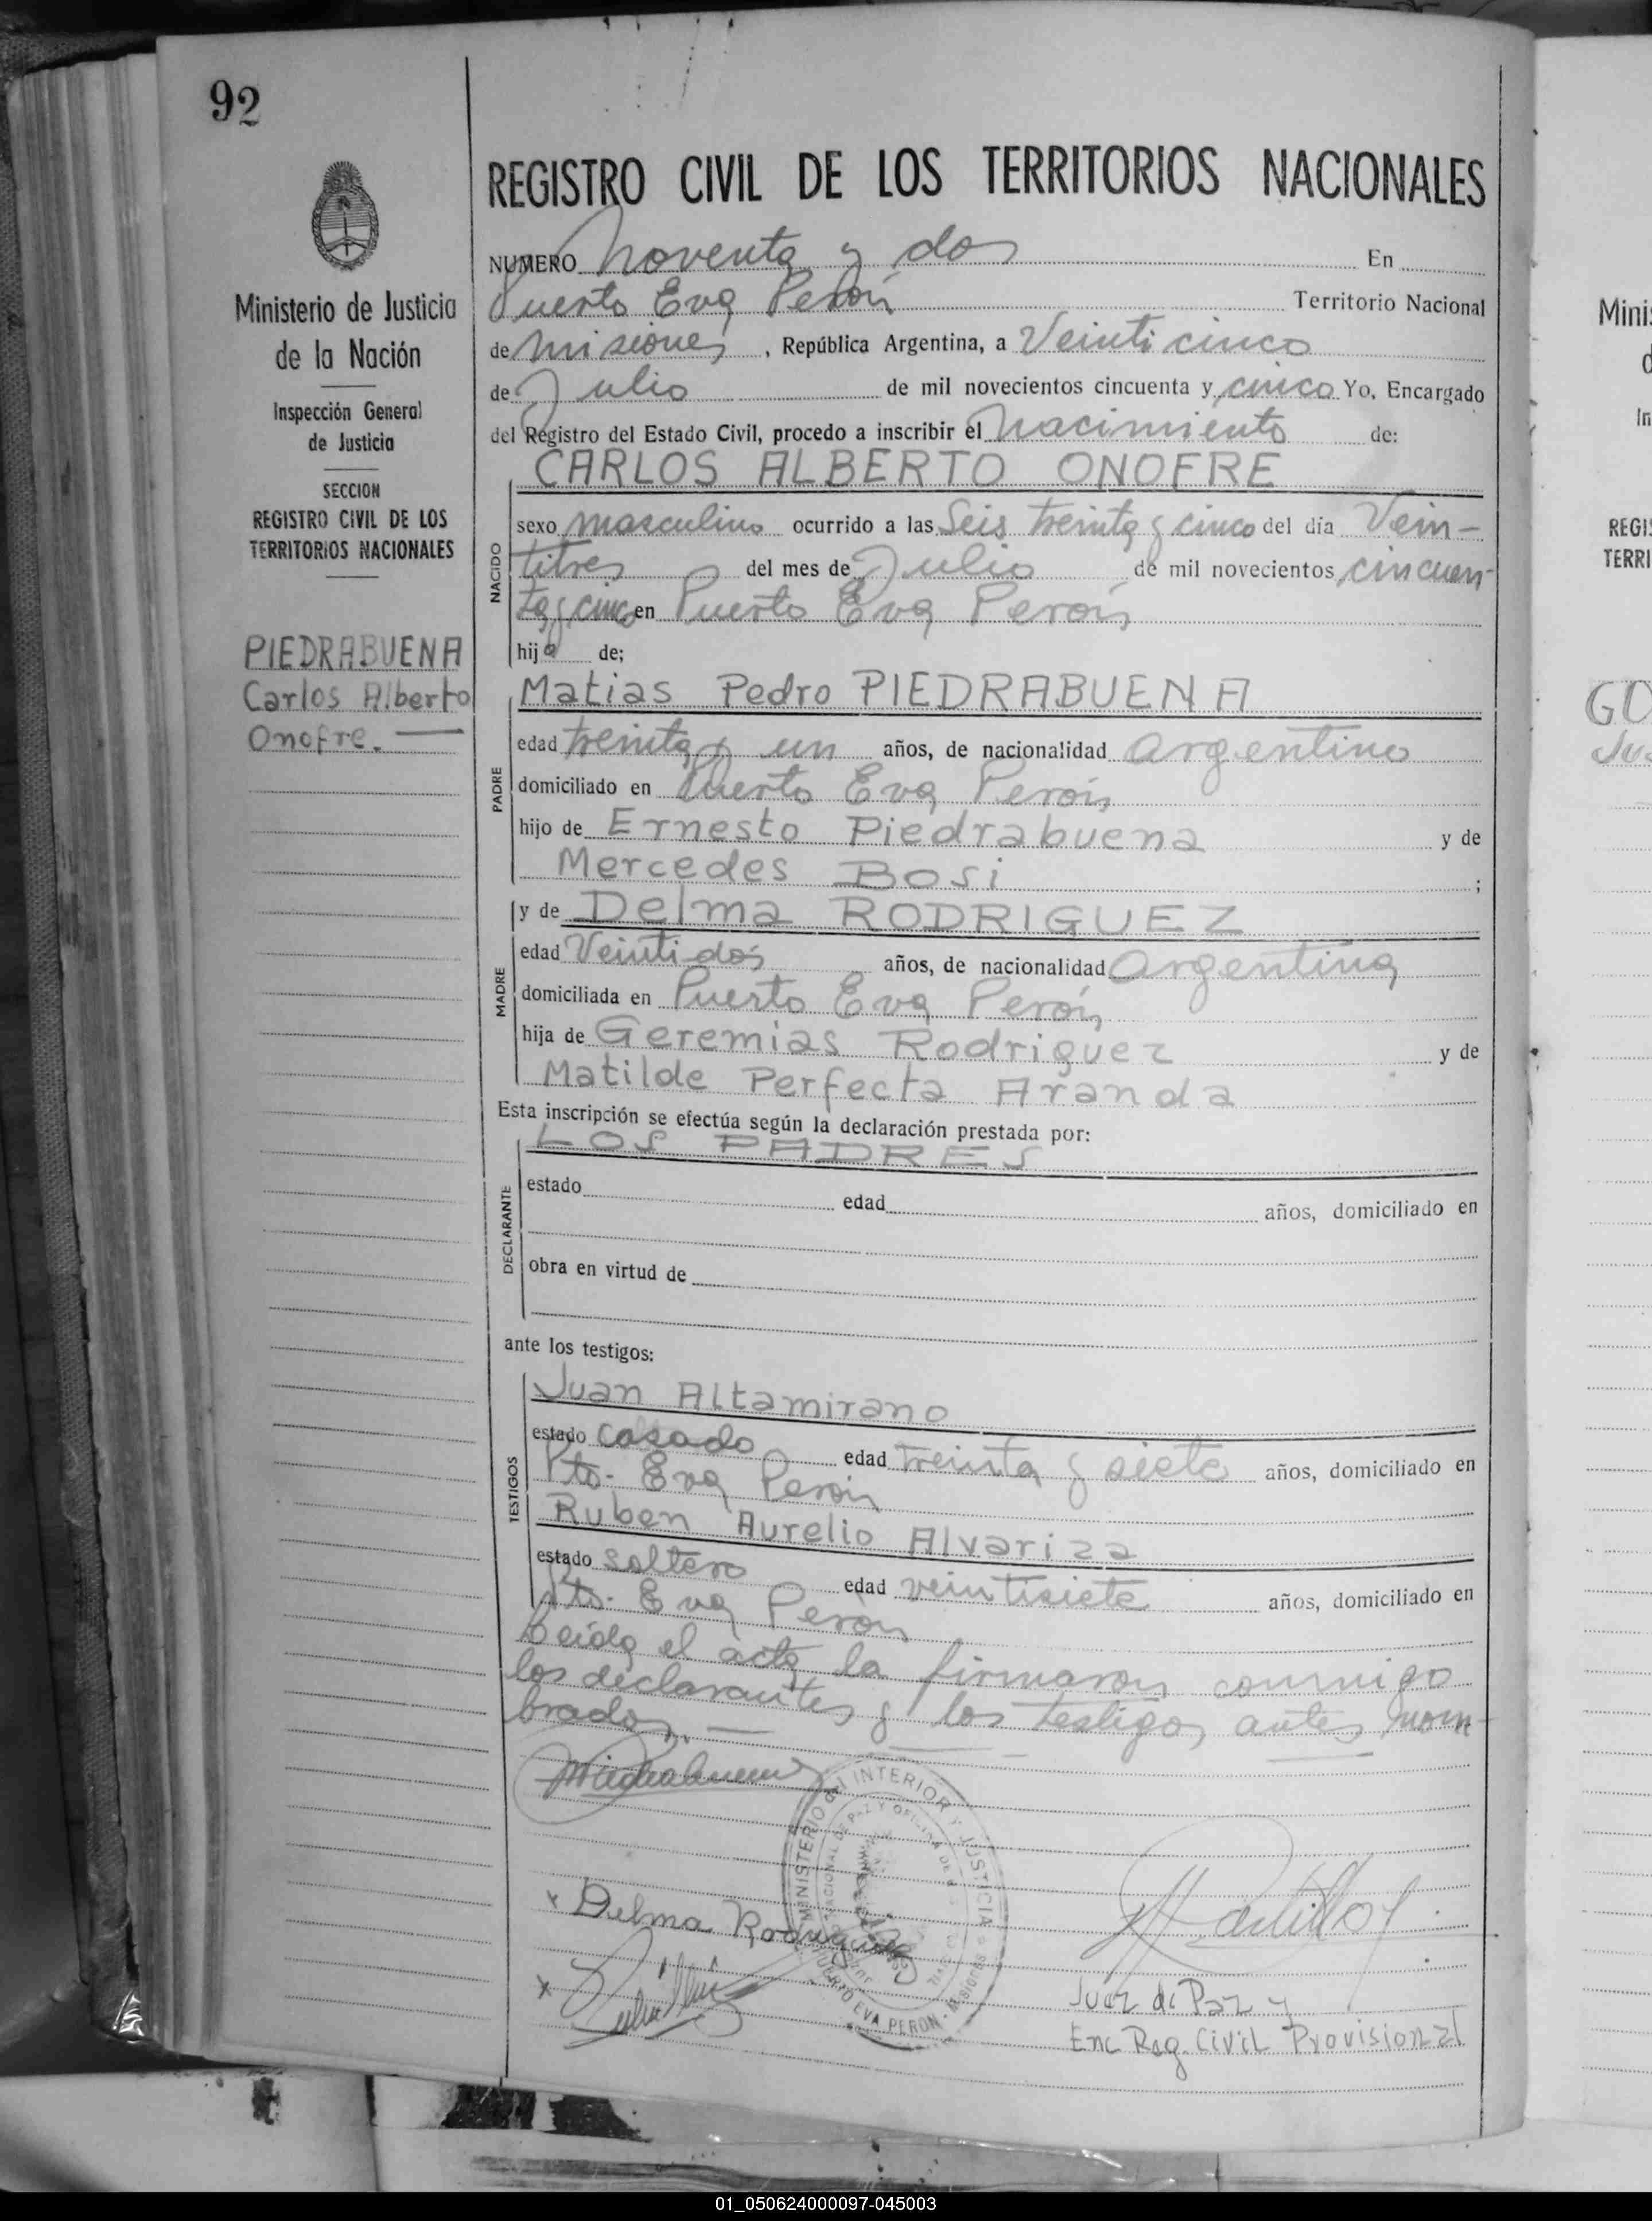 92
Ministerio de Justicia
de la Nación
Inspección General
de Justicia
SECCION
REGISTRO CIVIL DE LOS
TERRITORIOS NACIONALES
PIEDRABUENA
Carlos Alberto
Onofre. —
REGISTRO CIVIL DE LOS TERRITORIOS NACIONALES
NUMERO Noventa y dos En
Puerto Eva Perón Territorio Nacional
de Misiones, República Argentina, a Veinticinco
de Julio de mil novecientos cincuenta y cinco Yo, Encargado
del Registro del Estado Civil, procedo a inscribir el Nacimiento de:
CARLOS ALBERTO ONOFRE
NACIDO
sexo masculino ocurrido a las Seis treinta y cinco del día Vein-
titres del mes de Julio de mil novecientos cincuen-
ta y cinco en Puerto Eva Perón
hijo de;
Matias Pedro PIEDRABUENA
PADRE
edad treinta y un años, de nacionalidad argentino
domiciliado en Puerto Eva Perón
hijo de Ernesto Piedrabuena y de
Mercedes Bosi ;
y de Delma RODRIGUEZ
MADRE
edad Veintidós años, de nacionalidad Argentina
domiciliada en Puerto Eva Perón
hija de Geremias Rodriguez y de
Matilde Perfecta Aranda
Esta inscripción se efectúa según la declaración prestada por:
LOS PADRES
DECLARANTE
estado edad años, domiciliado en
obra en virtud de
ante los testigos:
Juan Altamirano
TESTIGOS
estado casado edad treinta y siete años, domiciliado en
Pto. Eva Perón
Ruben Aurelio Alvariza
estado soltero edad veintisiete años, domiciliado en
Pto. Eva Perón
Leida el acta la firmaron conmigo
los declarantes y los testigos antes nom-
brados. —
MPiedrabuena
MINISTERIO del INTERIOR Y JUSTICIA
DE PAZ Y OFICINA DE
PUERTO EVA PERON. Misiones
x Delma Rodriguez
x
Juez de Paz y
Enc Reg. Civil Provisional
Minis
REGIS
TERRI
GO
01_050624000097-045003